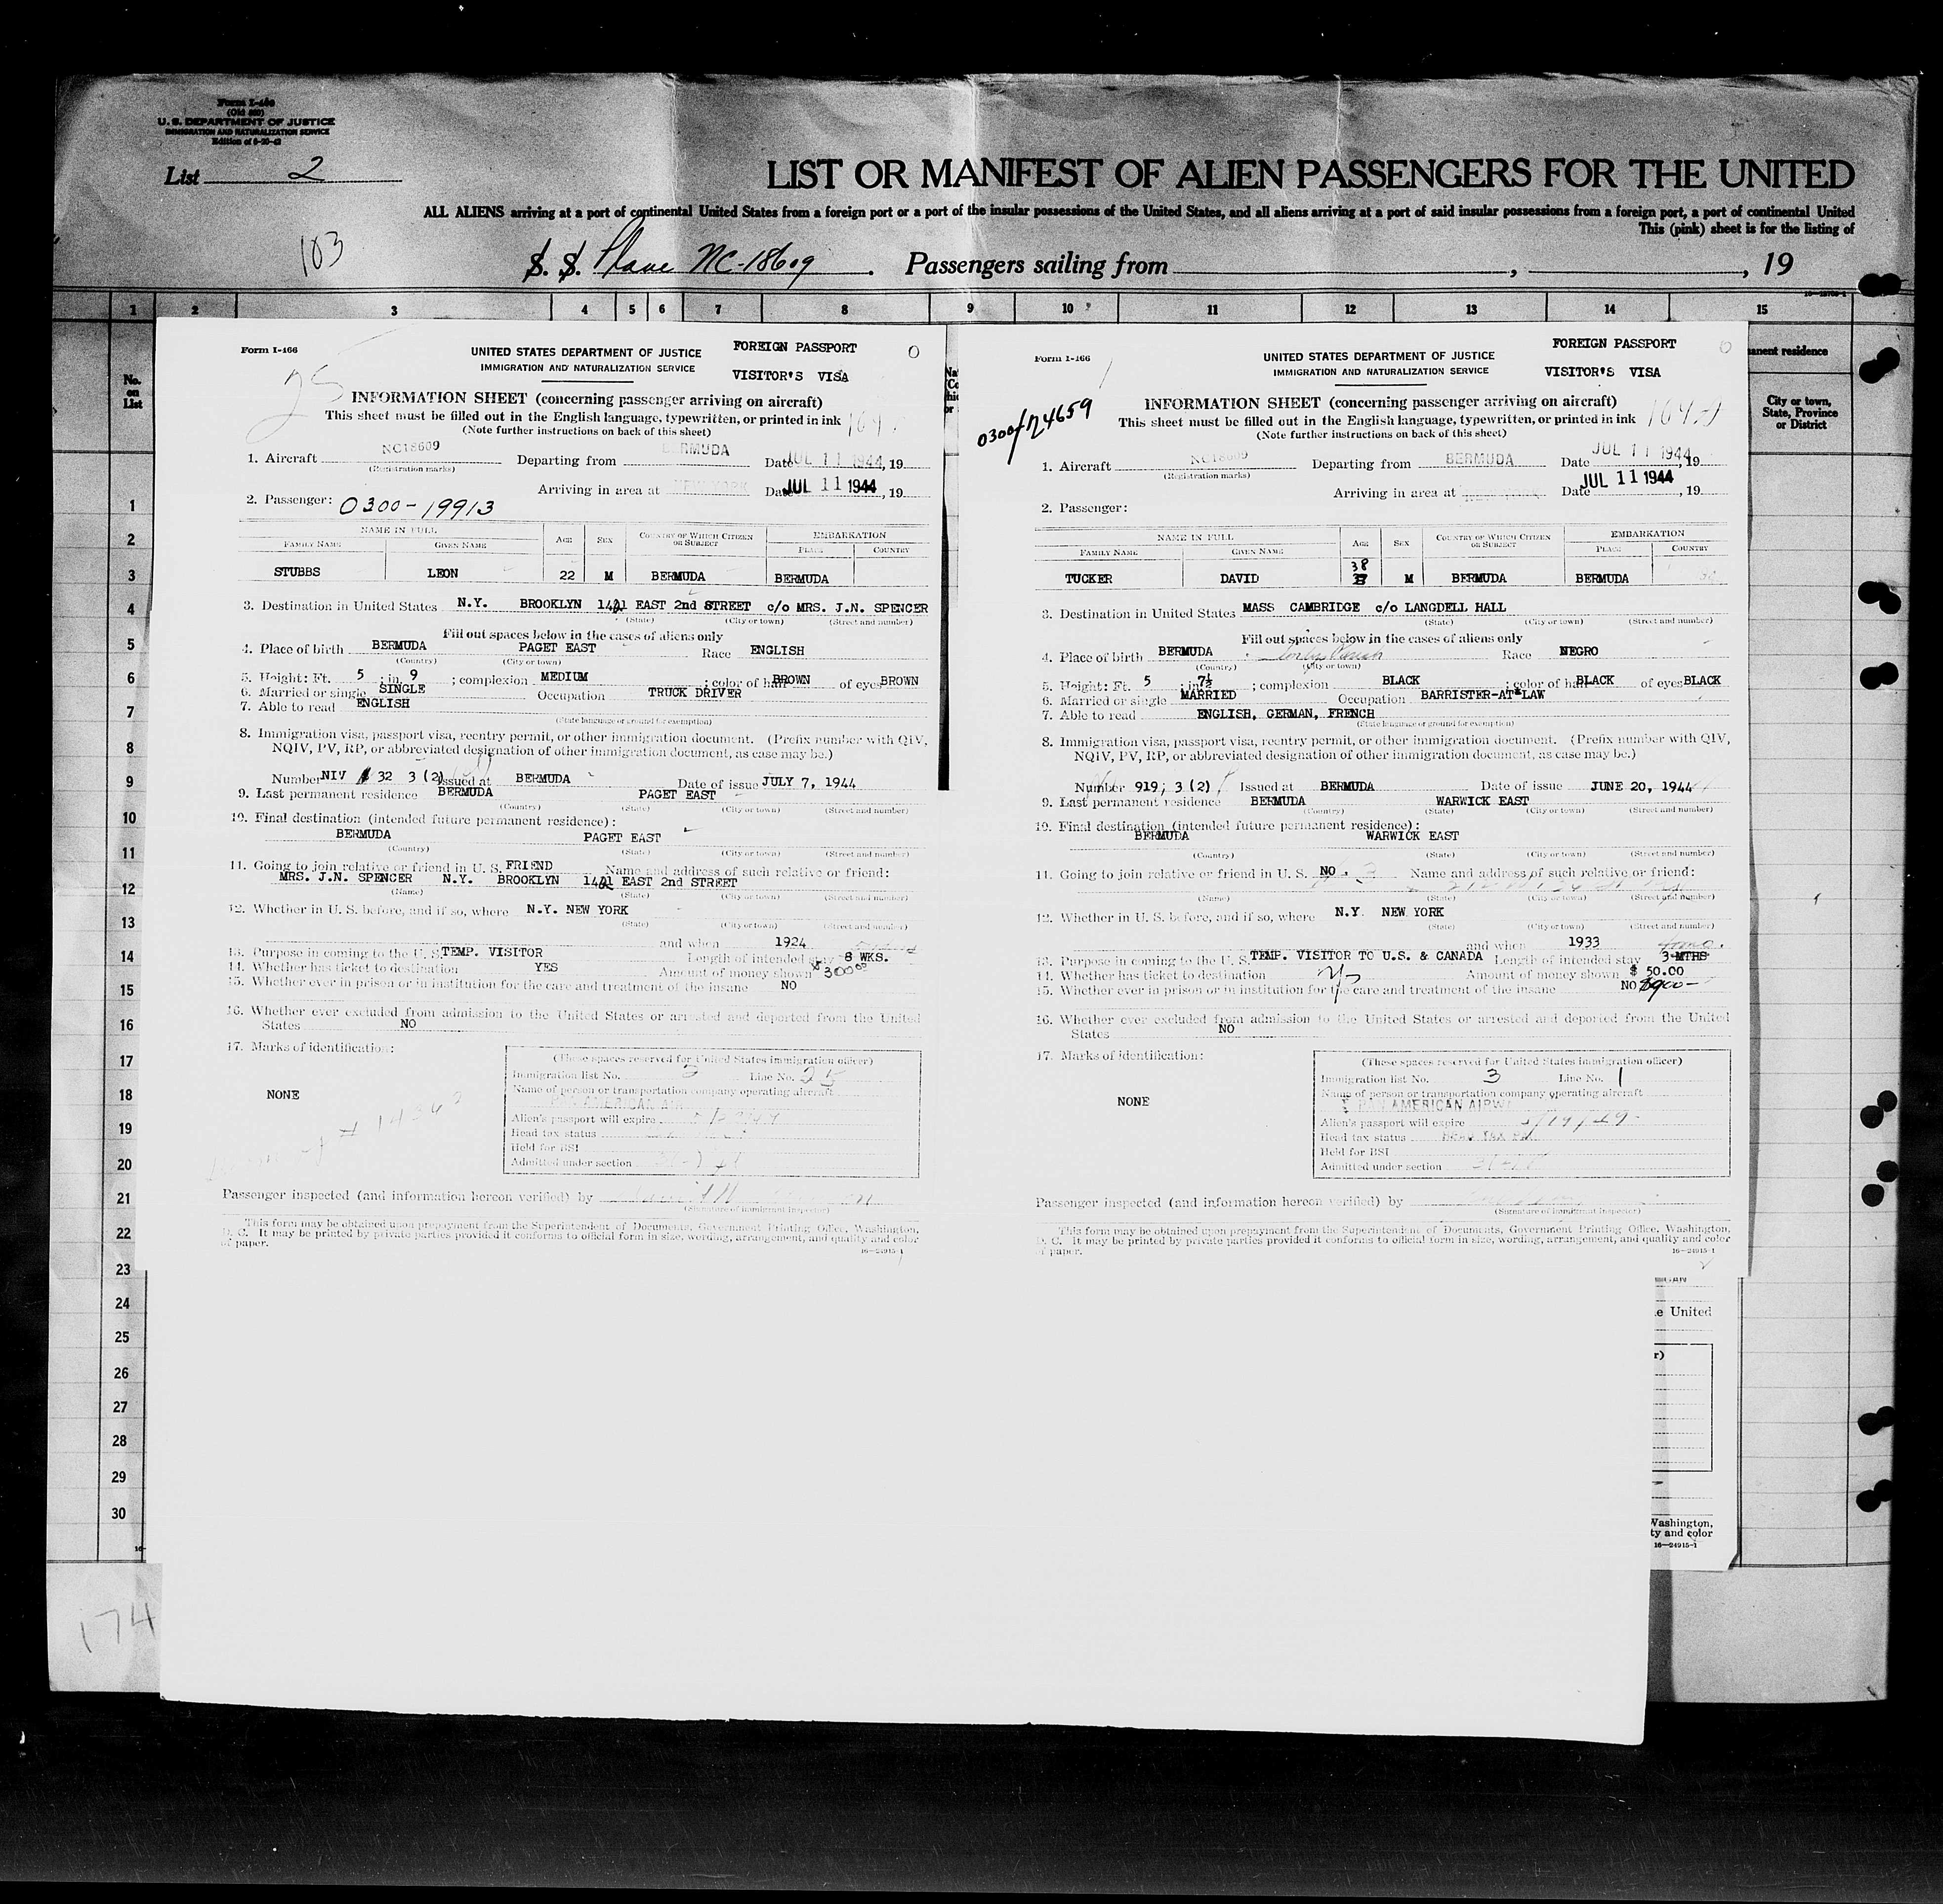 Form I-466
(Old 500)
U. S. DEPARTMENT OF JUSTICE
IMMIGRATION AND NATURALIZATION SERVICE
List 2
LIST OR MANIFEST OF ALIEN PASSENGERS FOR THE UNITED
ALL ALIENS arriving at a port of continental United States from a foreign port or a port of the insular possessions of the United States, and all aliens arriving at a port of said insular possessions from a foreign port, a port of continental United
This (pink) sheet is for the listing of
103
S. S. Plane NC-18609 . Passengers sailing from , , 19
1 2 3 4 5 6 7 8 9 10 11 12 13 14 15
No. on List
anent residence
City or town, State, Province or District
1
2
3
4
5
6
7
8
9
10
11
12
13
14
15
16
17
18
19
20
21
22
23
24
25
26
27
28
29
30
174
Form I-466
25
UNITED STATES DEPARTMENT OF JUSTICE
IMMIGRATION AND NATURALIZATION SERVICE
FOREIGN PASSPORT
VISITOR'S VISA
0
INFORMATION SHEET (concerning passenger arriving on aircraft)
This sheet must be filled out in the English language, typewritten, or printed in ink
(Note further instructions on back of this sheet)
1. Aircraft NC18609 Departing from BERMUDA Date JUL 11 1944, 19
(Registration marks)
Arriving in area at NEW YORK Date JUL 11 1944, 19
2. Passenger: 0300-19913
NAME IN FULL AGE SEX COUNTRY OF WHICH CITIZEN OR SUBJECT EMBARKATION
FAMILY NAME GIVEN NAME PLACE COUNTRY
STUBBS LEON 22 M BERMUDA BERMUDA
3. Destination in United States N.Y. BROOKLYN 1421 EAST 2nd STREET c/o MRS. J.N. SPENCER
(State) (City or town) (Street and number)
Fill out spaces below in the cases of aliens only
4. Place of birth BERMUDA PAGET EAST Race ENGLISH
(Country) (City or town)
5. Height: Ft. 5 ; in. 9 ; complexion MEDIUM ; color of hair BROWN of eyes BROWN
6. Married or single SINGLE Occupation TRUCK DRIVER
7. Able to read ENGLISH
(State language or ground for exemption)
8. Immigration visa, passport visa, reentry permit, or other immigration document. (Prefix number with QIV,
NQIV, PV, RP, or abbreviated designation of other immigration document, as case may be.)
Number NIV 32 3 (2) Issued at BERMUDA Date of issue JULY 7, 1944
9. Last permanent residence BERMUDA PAGET EAST
(Country) (State) (City or town) (Street and number)
10. Final destination (intended future permanent residence):
BERMUDA PAGET EAST
(Country) (State) (City or town) (Street and number)
11. Going to join relative or friend in U. S. FRIEND Name and address of such relative or friend:
MRS. J.N. SPENCER N.Y. BROOKLYN 1421 EAST 2nd STREET
(Name) (State) (City or town) (Street and number)
12. Whether in U. S. before, and if so, where N.Y. NEW YORK
(State) (City or town) (Street and number)
and when 1924
13. Purpose in coming to the U. S. TEMP. VISITOR Length of intended stay 8 WKS.
14. Whether has ticket to destination YES Amount of money shown $300.00
15. Whether ever in prison or in institution for the care and treatment of the insane NO
16. Whether ever excluded from admission to the United States or arrested and deported from the United
States NO
17. Marks of identification:
NONE
(These spaces reserved for United States immigration officer)
Immigration list No. 2 Line No. 25
Name of person or transportation company operating aircraft
PAN AMERICAN
Alien's passport will expire
Head tax status
Held for BSI
Admitted under section
Passenger inspected (and information hereon verified) by
(Signature of immigrant inspector)
This form may be obtained upon prepayment from the Superintendent of Documents, Government Printing Office, Washington,
D. C. It may be printed by private parties provided it conforms to official form in size, wording, arrangement, and quality and color
of paper.
16—24915-1
Form I-466
UNITED STATES DEPARTMENT OF JUSTICE
IMMIGRATION AND NATURALIZATION SERVICE
FOREIGN PASSPORT
VISITOR'S VISA
0
INFORMATION SHEET (concerning passenger arriving on aircraft)
This sheet must be filled out in the English language, typewritten, or printed in ink
(Note further instructions on back of this sheet)
1. Aircraft NC18609 Departing from BERMUDA Date JUL 11 1944, 19
(Registration marks)
Arriving in area at Date JUL 11 1944, 19
2. Passenger:
NAME IN FULL AGE SEX COUNTRY OF WHICH CITIZEN OR SUBJECT EMBARKATION
FAMILY NAME GIVEN NAME PLACE COUNTRY
TUCKER DAVID 38 M BERMUDA BERMUDA
3. Destination in United States MASS CAMBRIDGE c/o LANGDELL HALL
(State) (City or town) (Street and number)
Fill out spaces below in the cases of aliens only
4. Place of birth BERMUDA Race NEGRO
(Country) (City or town)
5. Height: Ft. 5 ; in. 7½ ; complexion BLACK ; color of hair BLACK of eyes BLACK
6. Married or single MARRIED Occupation BARRISTER-AT-LAW
7. Able to read ENGLISH, GERMAN, FRENCH
(State language or ground for exemption)
8. Immigration visa, passport visa, reentry permit, or other immigration document. (Prefix number with QIV,
NQIV, PV, RP, or abbreviated designation of other immigration document, as case may be.)
Number 919; 3 (2) Issued at BERMUDA Date of issue JUNE 20, 1944
9. Last permanent residence BERMUDA WARWICK EAST
(Country) (State) (City or town) (Street and number)
10. Final destination (intended future permanent residence):
BERMUDA WARWICK EAST
(Country) (State) (City or town) (Street and number)
11. Going to join relative or friend in U. S. NO. Name and address of such relative or friend:
(Name) (State) (City or town) (Street and number)
12. Whether in U. S. before, and if so, where N.Y. NEW YORK
(State) (City or town) (Street and number)
and when 1933
13. Purpose in coming to the U. S. TEMP. VISITOR TO U.S. & CANADA Length of intended stay 3 MTHS
14. Whether has ticket to destination Amount of money shown $ 50.00
15. Whether ever in prison or in institution for the care and treatment of the insane NO
16. Whether ever excluded from admission to the United States or arrested and deported from the United
States NO
17. Marks of identification:
NONE
(These spaces reserved for United States immigration officer)
Immigration list No. 3 Line No. 1
Name of person or transportation company operating aircraft
PAN AMERICAN AIRW
Alien's passport will expire
Head tax status
Held for BSI
Admitted under section
Passenger inspected (and information hereon verified) by
(Signature of immigrant inspector)
This form may be obtained upon prepayment from the Superintendent of Documents, Government Printing Office, Washington,
D. C. It may be printed by private parties provided it conforms to official form in size, wording, arrangement, and quality and color
of paper.
16—24915-1
e United
r)
Washington,
ty and color
16—24915-1